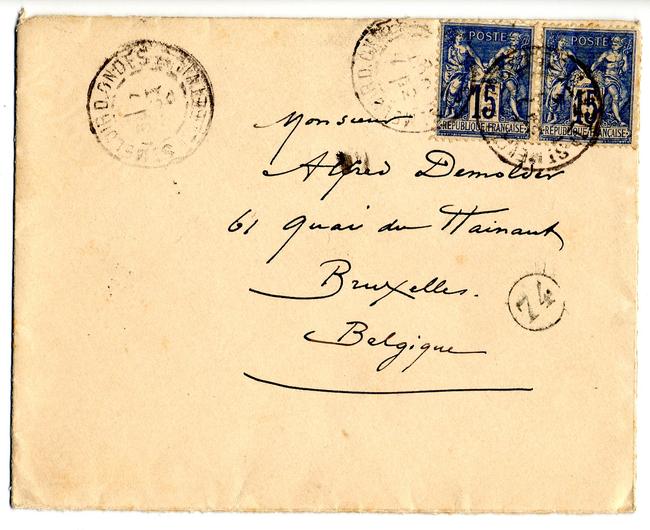 POSTE
15
RÉPUBLIQUE FRANÇAISE
POSTE
15
RÉPUBLIQUE FRANÇAISE
Monsieur
Alfred Demolder
61 Quai du Hainaut
Bruxelles.
Belgique
74